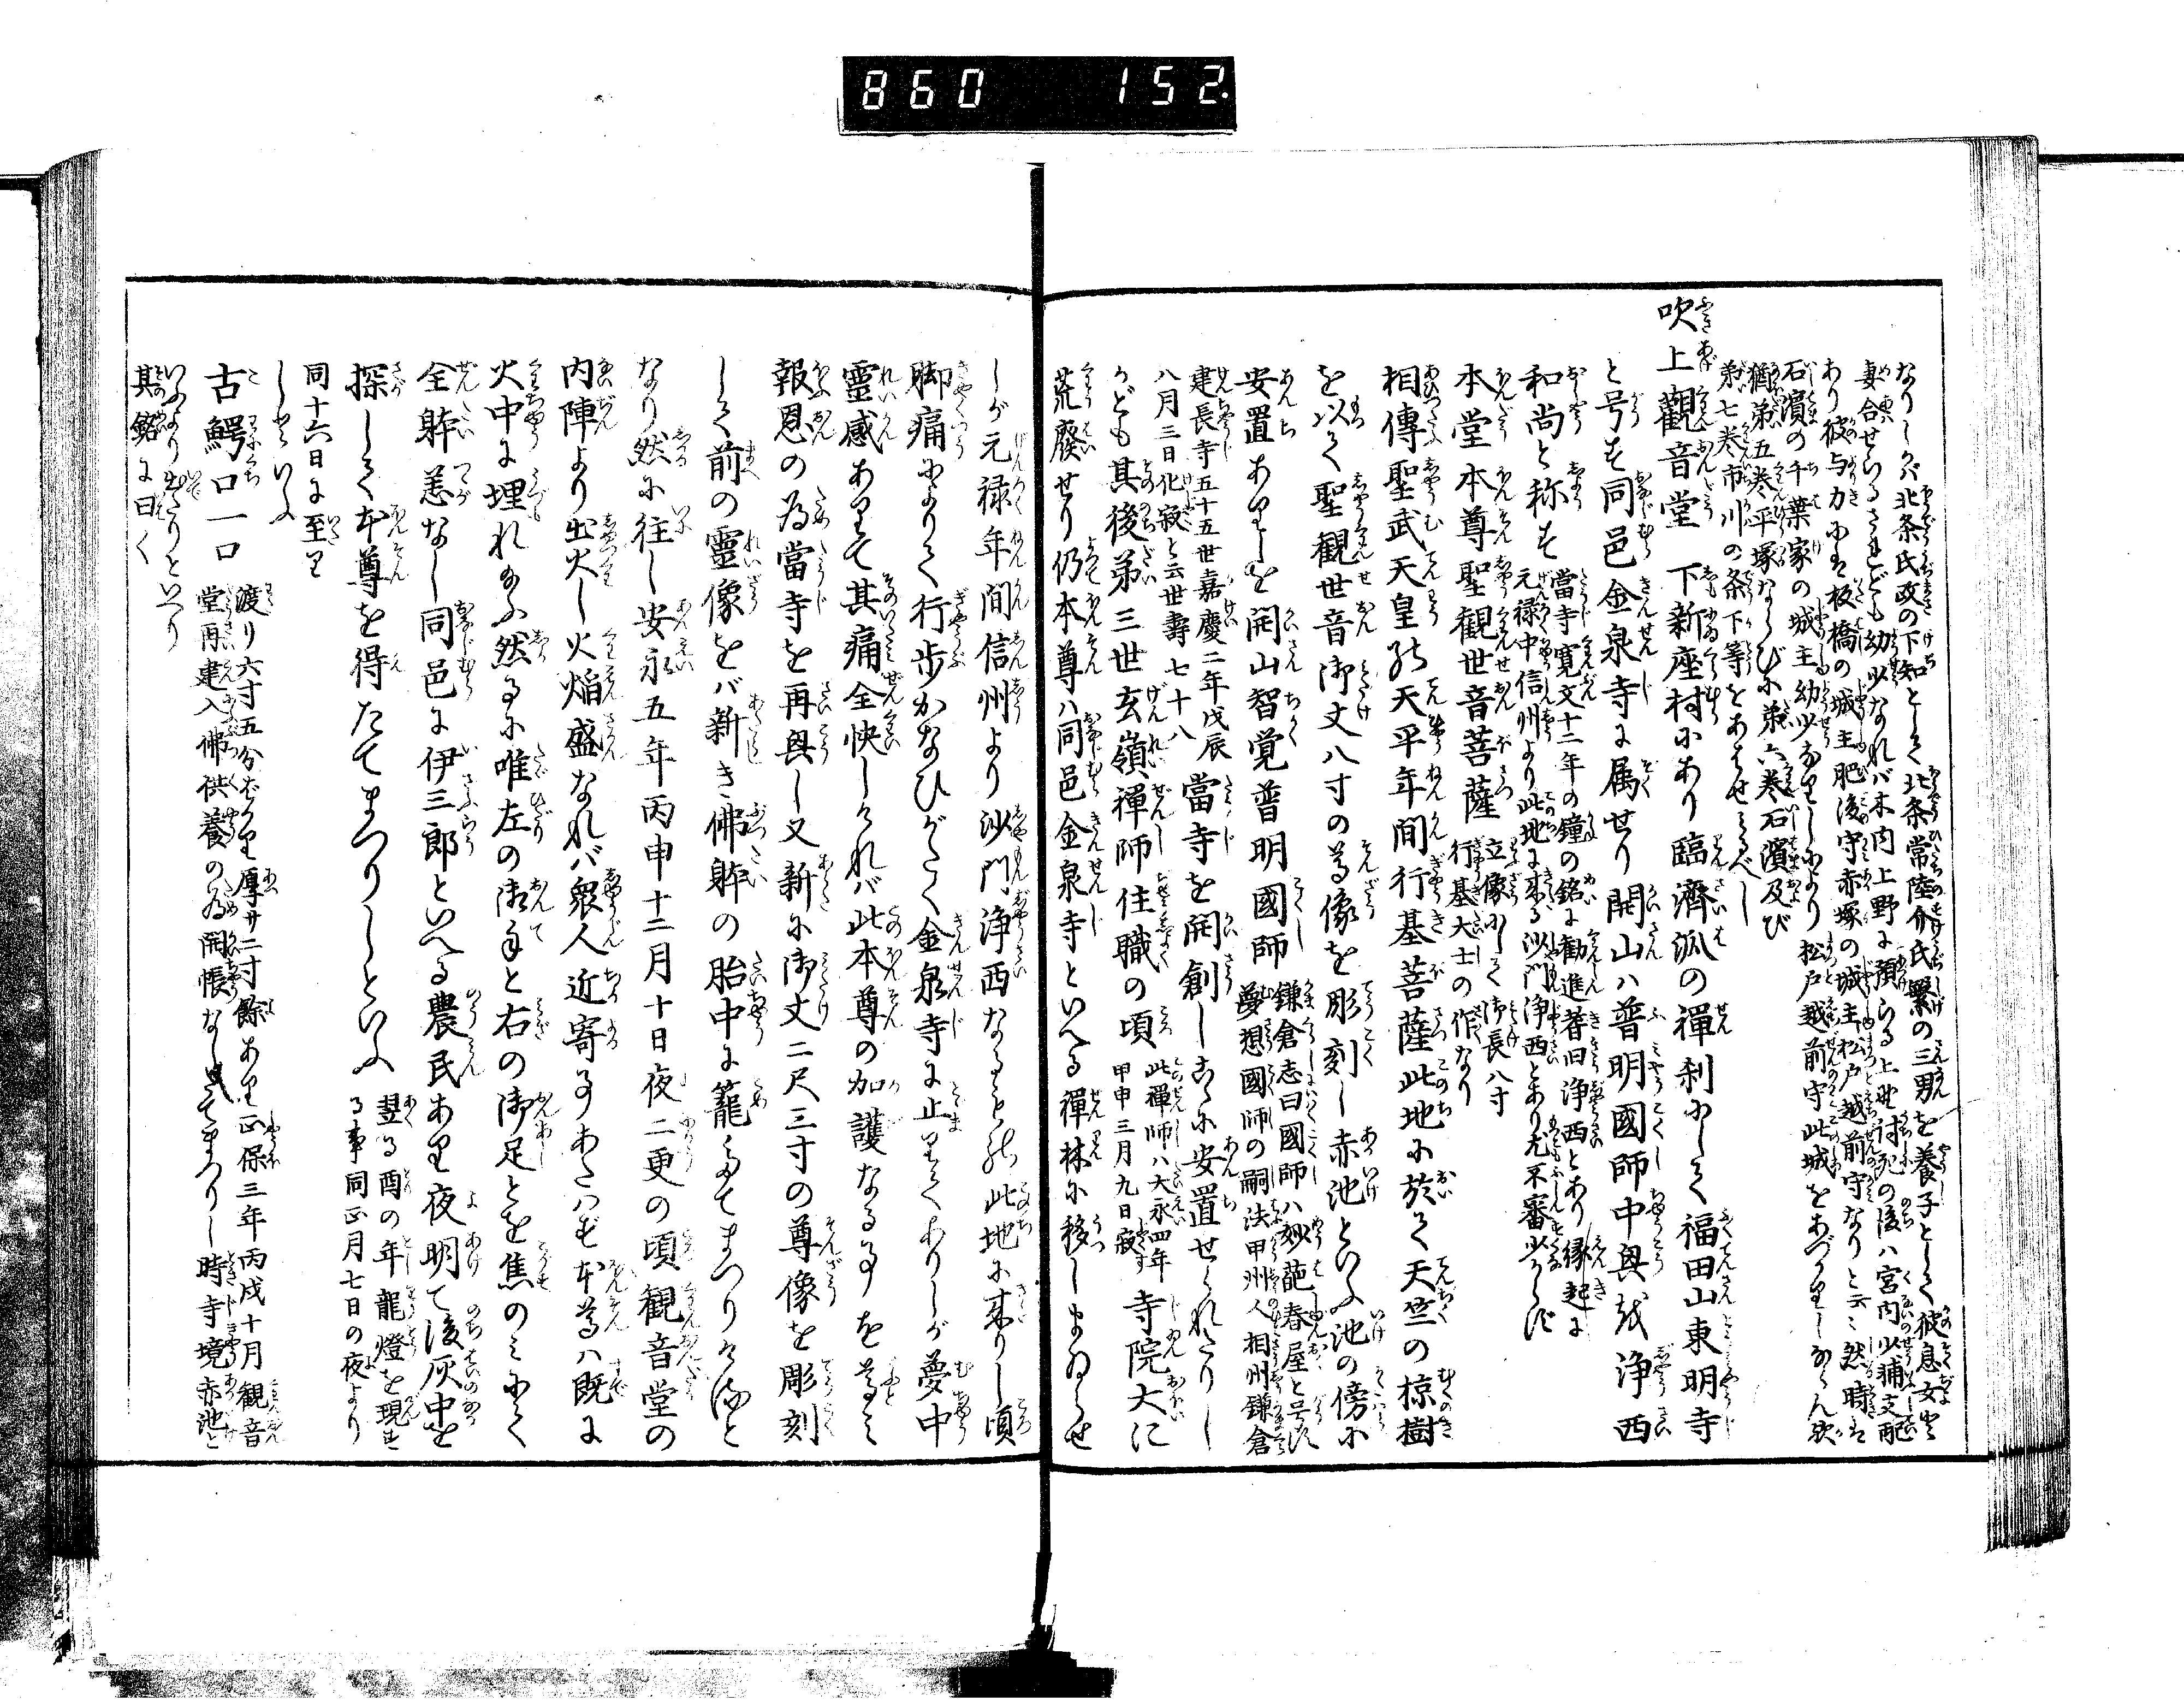 860 152
なりしが北条氏政の下知として北条常陸介氏繁の三男を養子として彼息女に
妻合せらるされども幼少なれば木内上野に預らる上野討死の後は宮内少輔支配
あり彼与力には板橋の城主肥後守赤塚の城主松戸越前守なりと云云然時は
石濱の千葉家の城主幼少なりしにより松戸越前守此城をあづかりしならん歟
猶第五巻平塚ならびに第六巻石濱及び
第七巻市川の条下等をあはせみるべし
吹上觀音堂 下新座村にあり臨濟派の禪刹にして福田山東明寺
と号す同邑金泉寺に属せり開山は普明國師中興を浄西
和尚と称す
當寺寛文十二年の鐘の銘に勸進耆旧浄西とあり縁起に
元禄中信州より此地に来る沙門浄西とあり尤不審少からず
本堂本尊聖観世音菩薩
立像にして御長八寸
行基大士の作なり
相傳聖武天皇の天平年間行基菩薩此地に於て天竺の椋樹
を以て聖観世音御丈八寸の尊像を彫刻し赤池といふ池の傍に
安置ありしを開山智覚普明國師
鎌倉志曰國師は妙葩春屋と号す
夢想國師の嗣法甲州人相州鎌倉
建長寺五十五世嘉慶二年戊辰
八月三日化寂と云世壽七十八
當寺を開創しこゝに安置せられたりし
かども其後第三世玄嶺禪師住職の頃
此禪師は大永四年
甲申三月九日寂す
寺院大に
荒廢せり仍本尊は同邑金泉寺といへる禪林に移しまゐらせ
しが元禄年間信州より沙門浄西なるもの此地に来りし頃
脚痛によりて行歩かなひがたく金泉寺に止りてありしが夢中
靈感ありて其痛全快しければ此本尊の加護なる事を尊み
報恩の為當寺を再興し又新に御丈二尺三寸の尊像を彫刻
して前の靈像をば新き佛躰の胎中に籠たてまつりけると
なり然に往し安永五年丙申十二月十日夜二更の頃観音堂の
内陣より出火し火焔盛なれば衆人近寄事あたはず本尊は既に
火中に埋れ給ふ然るに唯左の御手と右の御足とを焦のミにて
全躰恙なし同邑に伊三郎といへる農民あり夜明て後灰中を
探して本尊を得たてまつりしといふ
翌る酉の年龍燈を現ず
る事同正月七日の夜より
同十六日に至り
しといふ
古鰐口一口
渡リ六寸五分ばかり厚サ二寸餘あり正保三年丙戌十月観音
堂再建入佛供養の為開帳なしたてまつりし時寺境赤池と
いふより出たりといへり
其銘に曰く